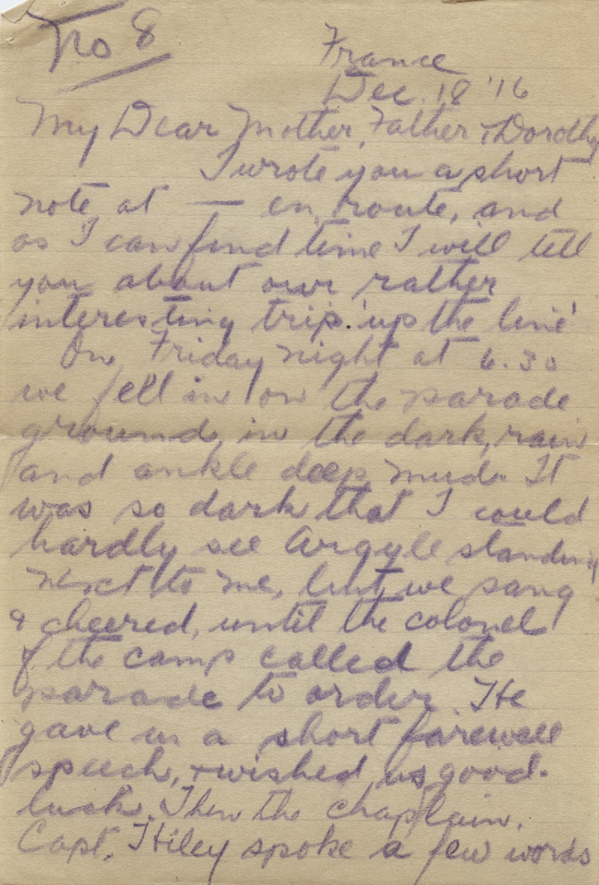 No 8
France
Dec. 18 '16
My Dear Mother, Father & Dorothy
I wrote you a short
note at — en route, and
as I can find time I will tell
you about our rather
interesting trip 'up the line'
On Friday night at 6.30
we fell in on the parade
ground, in the dark, rain
and ankle deep mud. It
was so dark that I could
hardly see Argyle standing
next to me, but we sang
& cheered, until the colonel
of the camp called the
parade to order. He
gave us a short farewell
speech, & wished us good-
luck. Then the chaplain,
Capt. Hiley spoke a few words